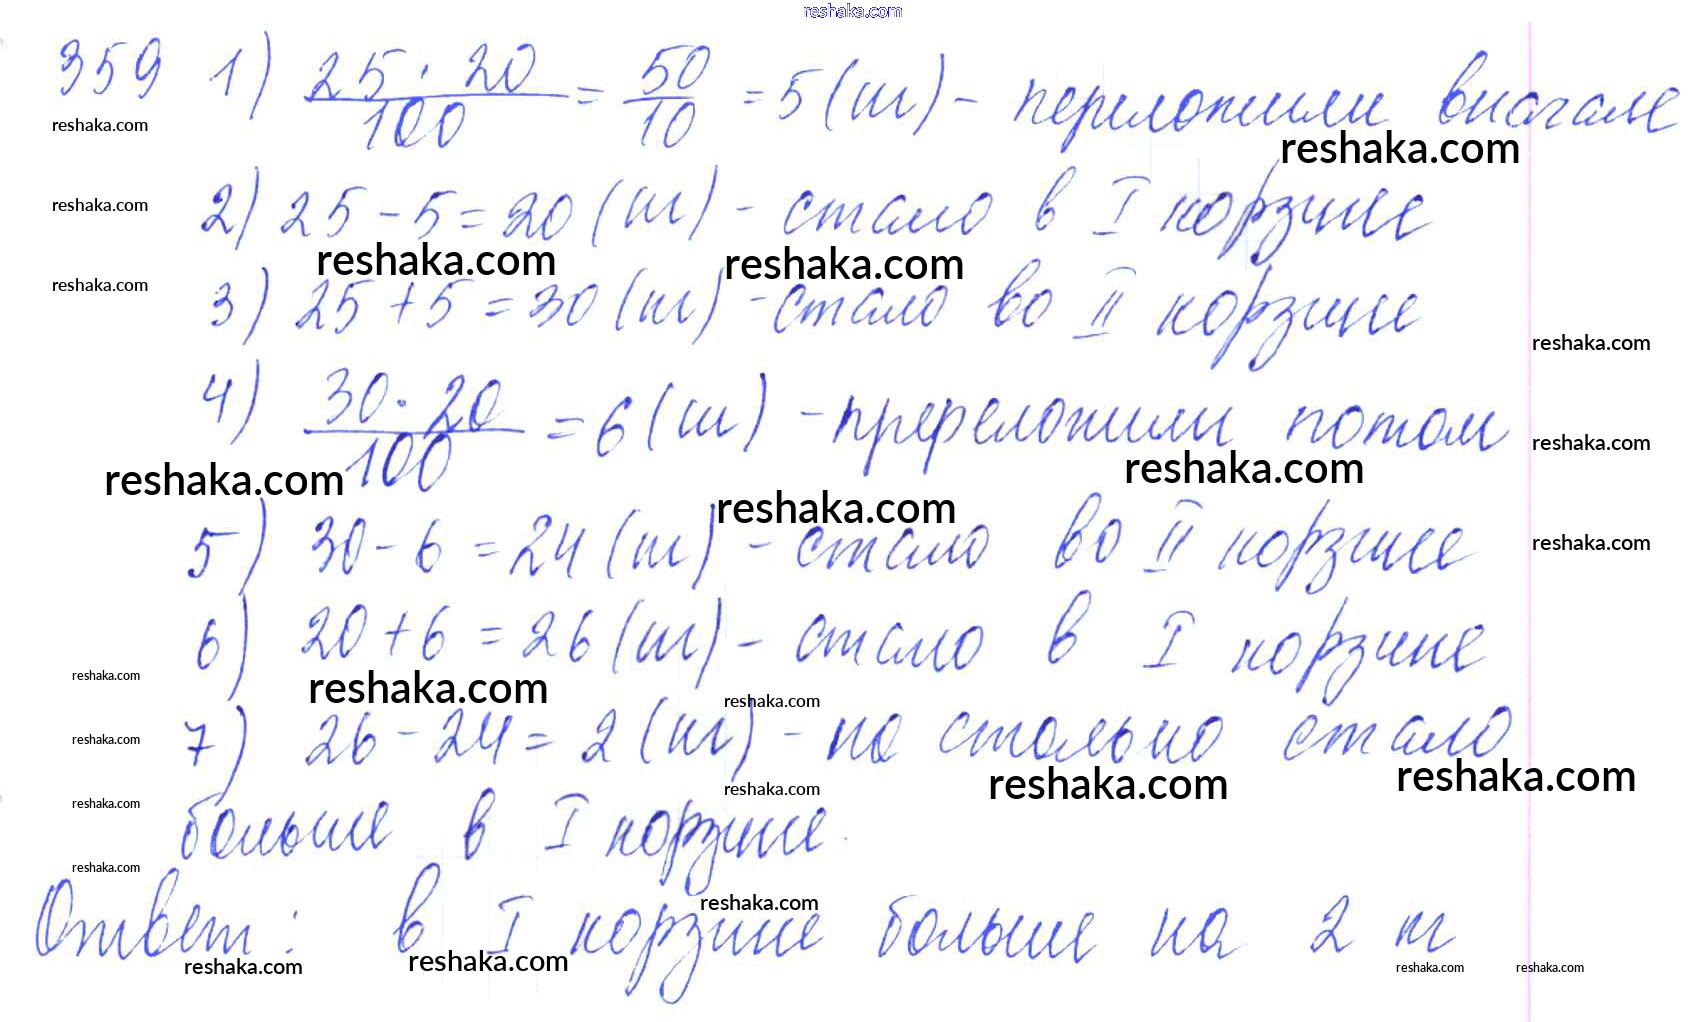 reshaka.com
359 1) 25 · 20 / 100 = 50 / 10 = 5 (кг) - переложили вначале
reshaka.com reshaka.com
reshaka.com 2) 25 - 5 = 20 (кг) - стало в I корзине
reshaka.com reshaka.com
reshaka.com 3) 25 + 5 = 30 (кг) - стало во II корзине
reshaka.com
4) 30 · 20 / 100 = 6 (кг) - пререложили потом
reshaka.com
reshaka.com reshaka.com
reshaka.com
5) 30 - 6 = 24 (кг) - стало во II корзине
reshaka.com
6) 20 + 6 = 26 (кг) - стало в I корзине
reshaka.com
reshaka.com reshaka.com
7) 26 - 24 = 2 (кг) - на столько стало
reshaka.com
reshaka.com reshaka.com reshaka.com
reshaka.com
больше в I корзине.
reshaka.com
reshaka.com
Ответ: в I корзине больше на 2 кг
reshaka.com reshaka.com reshaka.com reshaka.com